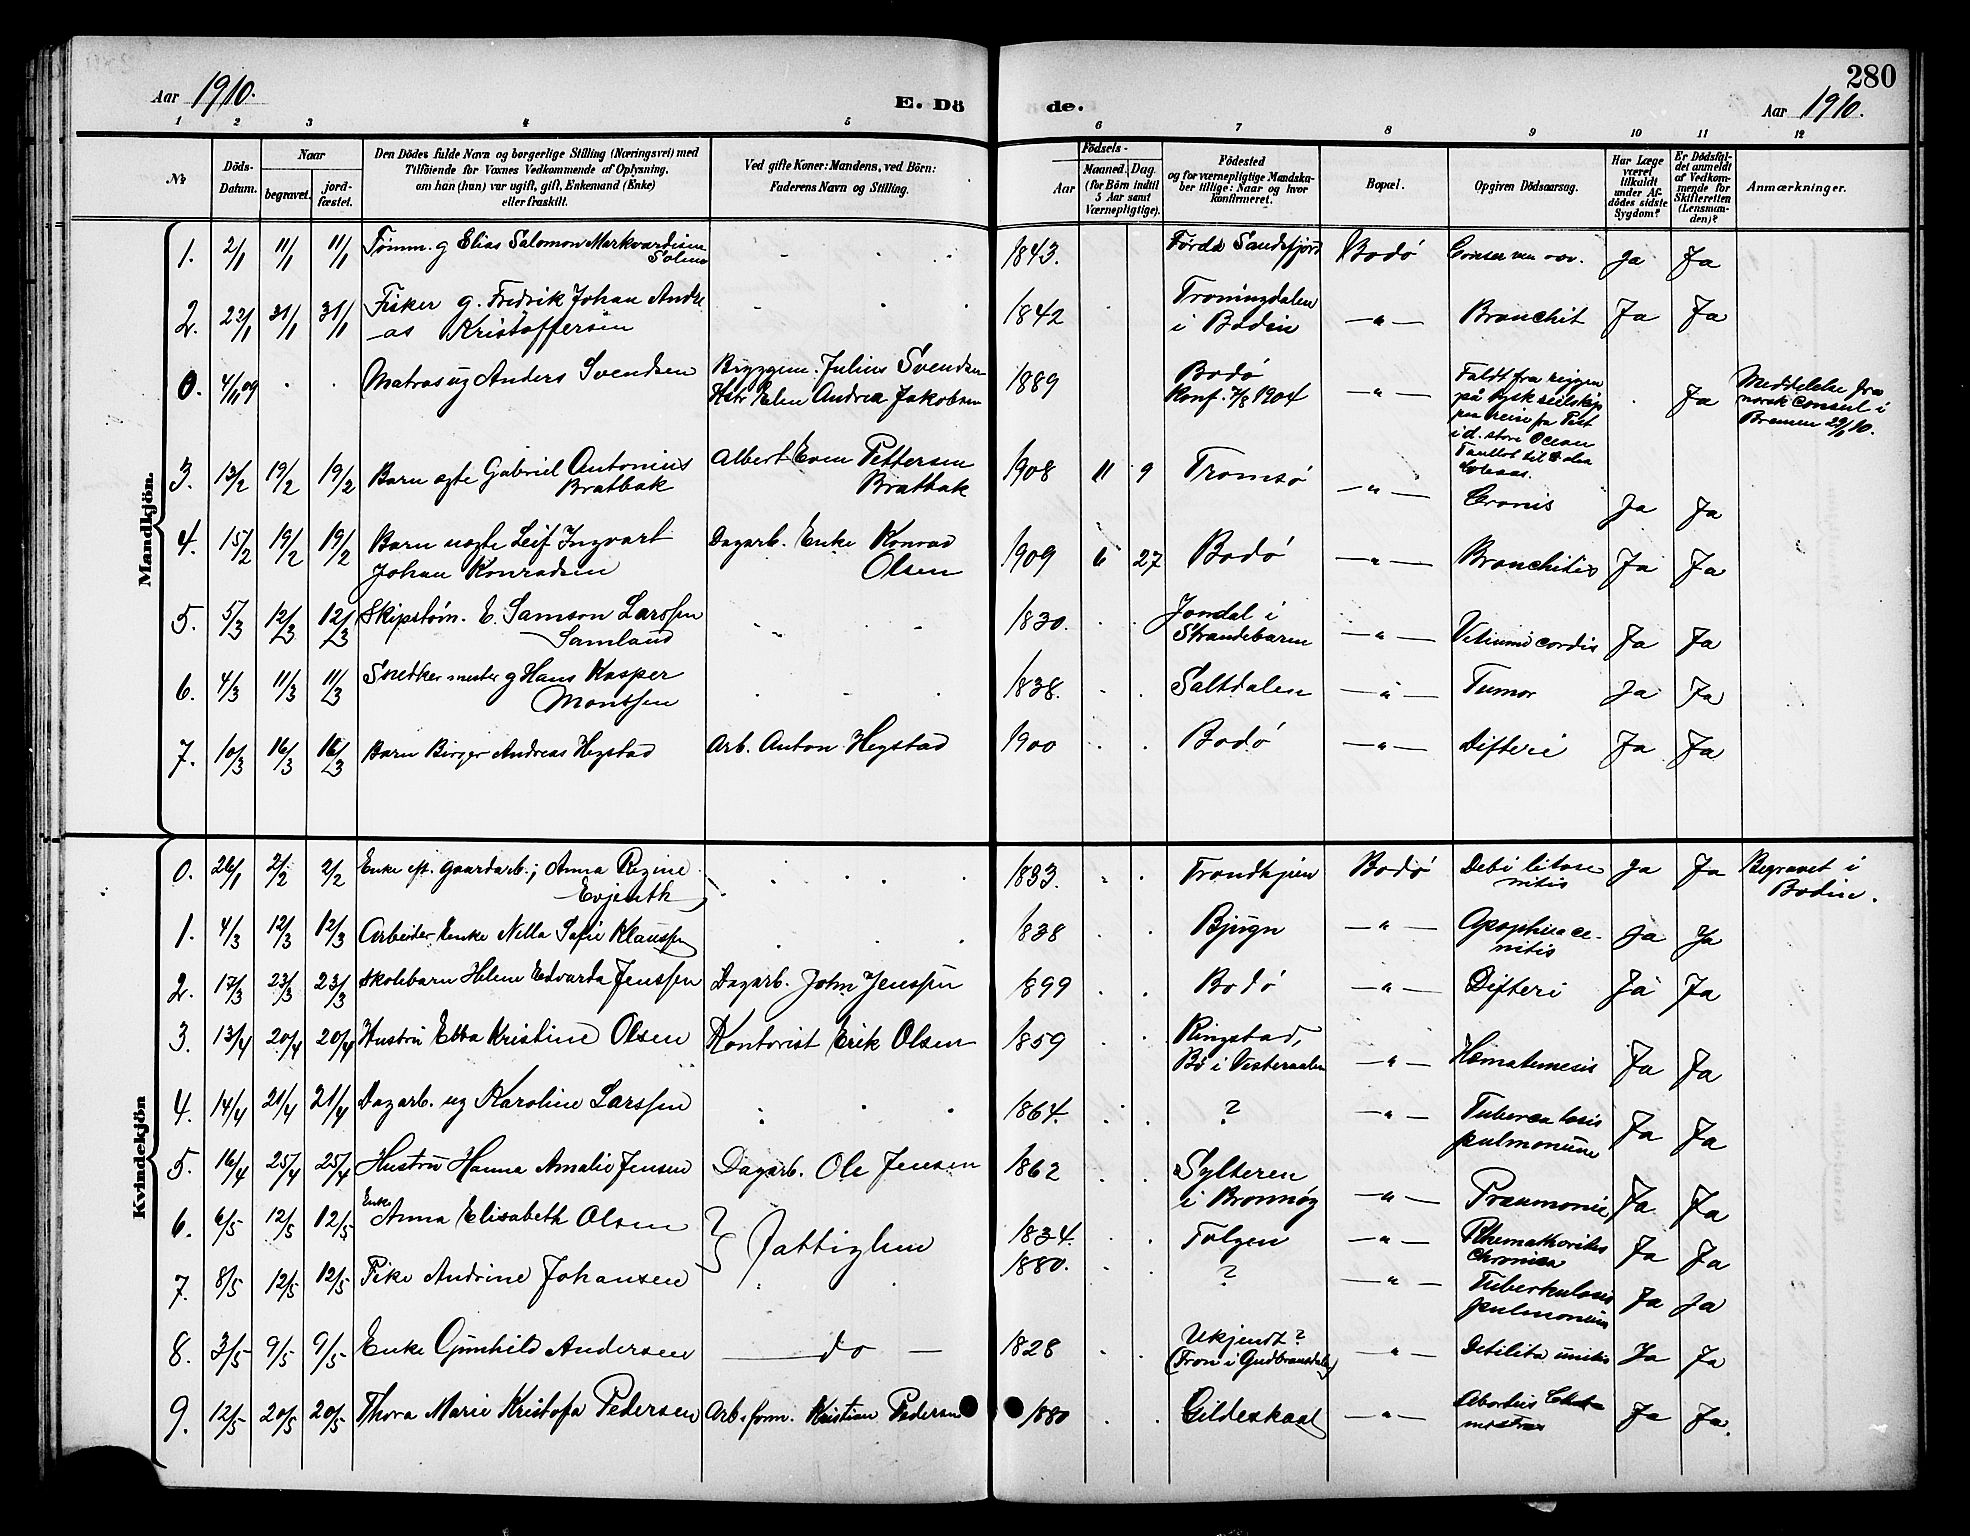 280
Aar 1910.
E. Dö de.
Aar 1910.
1 2 3 4 5 6 7 8 9 10 11 12
No
Döds-Datum.
Naar
begravet.
jord-fæstet.
Den Dödes fulde Navn og borgerlige Stilling (Næringsvei) med
Tilföiende for Voxnes Vedkommende af Oplysning,
om han (hun) var ugift, gift, Enkemand (Enke)
eller fraskilt.
Ved gifte Koner: Mandens, ved Börn:
Faderens Navn og Stilling.
Födsels-
Aar
Maaned. Dag.
(for Börn indtil
5 Aar samt
Værnepligtige).
Födested
og for værnepligtige Mandska-
ber tillige: Naar og hvor
konfirmeret.
Bopæl.
Opgiven Dödsaarsag.
Har Læge
været
tilkaldt
under Af-
dödes sidste
Sygdom?
Er Dödsfal-
det anmeldt
af Vedkom-
mende for
Skifteretten
(Lensman-
den)?
Anmærkninger.
Mandkjön.
1. 2/1 11/1 11/1 Tømm. g Elias Salomon Markvardsen 1843. Sandefjord Bodø Ja Ja
2. 22/1 31/1 31/1 Fisker g. Fredrik Johan Andre
-as Kristoffersen 1842 i Bodin -"- Bronchit Ja Ja
0. 4/11 09 Matros ug Anders Svendsen Bryggem. Julius Svendsen
Hstr Elen Andrea Jakobsen 1889 Bodø
Konf. 7/8 1904 -"- Faldt fra riggen
på tysk seilskip
i d. store Ocean
Ja Meddelelse fra
norsk Consul i
Bremen 29/1 10.
3. 13/2 19/2 19/2 Barn ægte Gabriel Antonius
Bratbak Albert Even Pettersen
Bratbak 1908 11 9 Tromsø -"- Cronis Ja Ja
4. 15/2 19/2 19/2 Barn uægte Leif Ingvart
Johan Konradsen Dagarb. Enke Konrad
Olsen 1909 6 27 Bodø -"- Bronchitis Ja Ja
5. 5/3 12/3 12/3 Skipstøm. E. Samson Larssen
Samland 1830. Jondal i
Strandebarm -"- Vitium cordis Ja Ja
6. 4/3 11/3 11/3 Snedkermester g Hans Kasper
Monssen 1838. Saltdalen -"- Tumor Ja Ja
7. 10/3 16/3 16/3 Barn Birger Andreas Hegstad Arb. Anton Hegstad 1900 Bodø -"- Difteri Ja Ja
Kvindekjön
0. 26/1 2/2 2/2 Enke eft. gaardarb.; Anna Regine
Evjenth 1833. Trondhjem Bodø Ja Ja Begravet i
Bodin.
1. 4/3 12/3 12/3 Arbeider Enke Nilla Sofie Klaussen 1838 Bjugn -"- Ja Ja
2. 17/3 23/3 23/3 Skolebarn Helene Edvarda Jenssen Dagarb. John Jenssen 1899 Bodø -"- Difteri Ja Ja
3. 13/4 20/4 20/4 Hustru Ebba Kristine Olsen Kontorist Erik Olsen 1859 Ringstad,
Bø i Vesteraalen -"- Hæmatemesis Ja Ja
4. 14/4 21/4 21/4 Dagarb. ug Karoline Larssen 1864. ? -"- Tuberculosis
pulmonum Ja Ja
5. 16/4 25/4 25/4 Hustru Hanna Amalie Jensen Dagarb. Ole Jensen 1862 Sylteren
i Brønnøy -"- Pneumonie Ja Ja
6. 6/5 12/5 12/5 Enke Anna Elisabeth Olsen Fattiglem 1834. Tolgen -"- Chronica Ja Ja
7. 8/5 12/5 12/5 Pike Andrine Johansen 1880. ? -"- Tuberkulosis
pulmonum Ja Ja
8. 3/5 9/5 9/5 Enke Gunhild Andersen — do — 1828 Ukjendt?
(Tron i Gudbransdalen) -"- Ja Ja
9. 12/5 20/5 20/5 Thora Marie Kristofa Pedersen Arb. form. Kristian Pedersen 1880 Gildeskaal -"- Ja Ja.